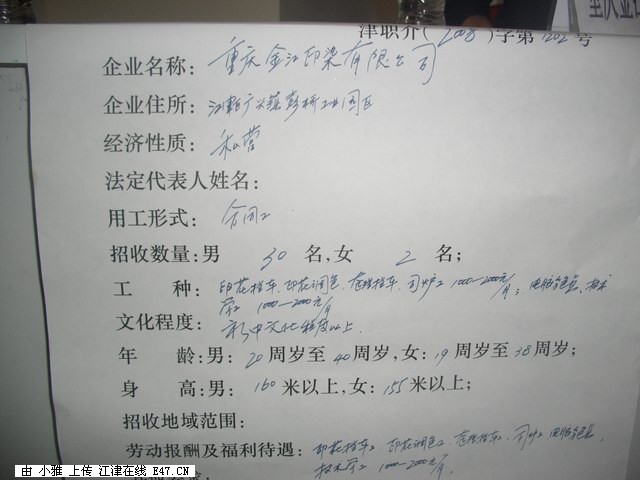 津职介(2008)字第1202号
企业名称：重庆金江印染有限公司
企业住所：江津广兴镇彭桥工业园区
经济性质：私营
法定代表人姓名：
用工形式：合同工
招收数量：男 30 名，女 2 名；
工 种：印花挡车、印花调色、挡车、司炉工 1000—2000元/月；电脑
1000—2000元/月
文化程度：初中文化程度以上.
年 龄：男：20周岁至40周岁，女：19周岁至38周岁；
身 高：男：160米以上，女：155米以上；
招收地域范围：
劳动报酬及福利待遇：印花挡车工 印花调色工 挡车工 司炉工
1000—2000元/月.
由 小雅 上传 江津在线 E47.CN